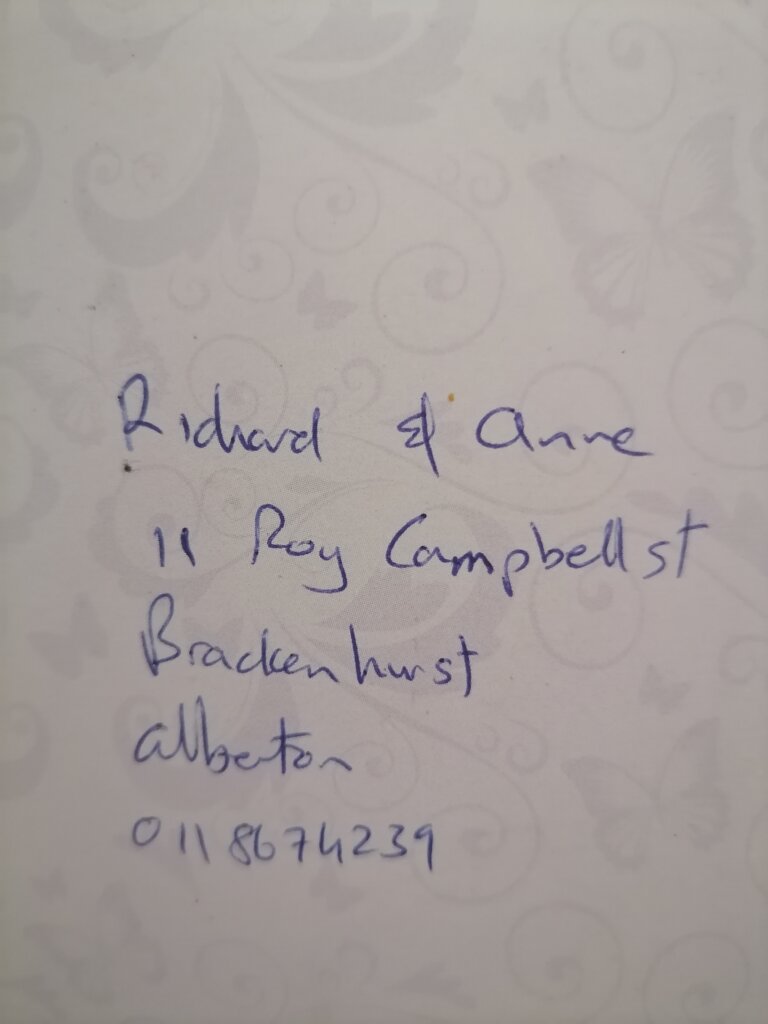 Richard & Anne
11 Roy Campbell st
Brackenhurst
Alberton
0118674239